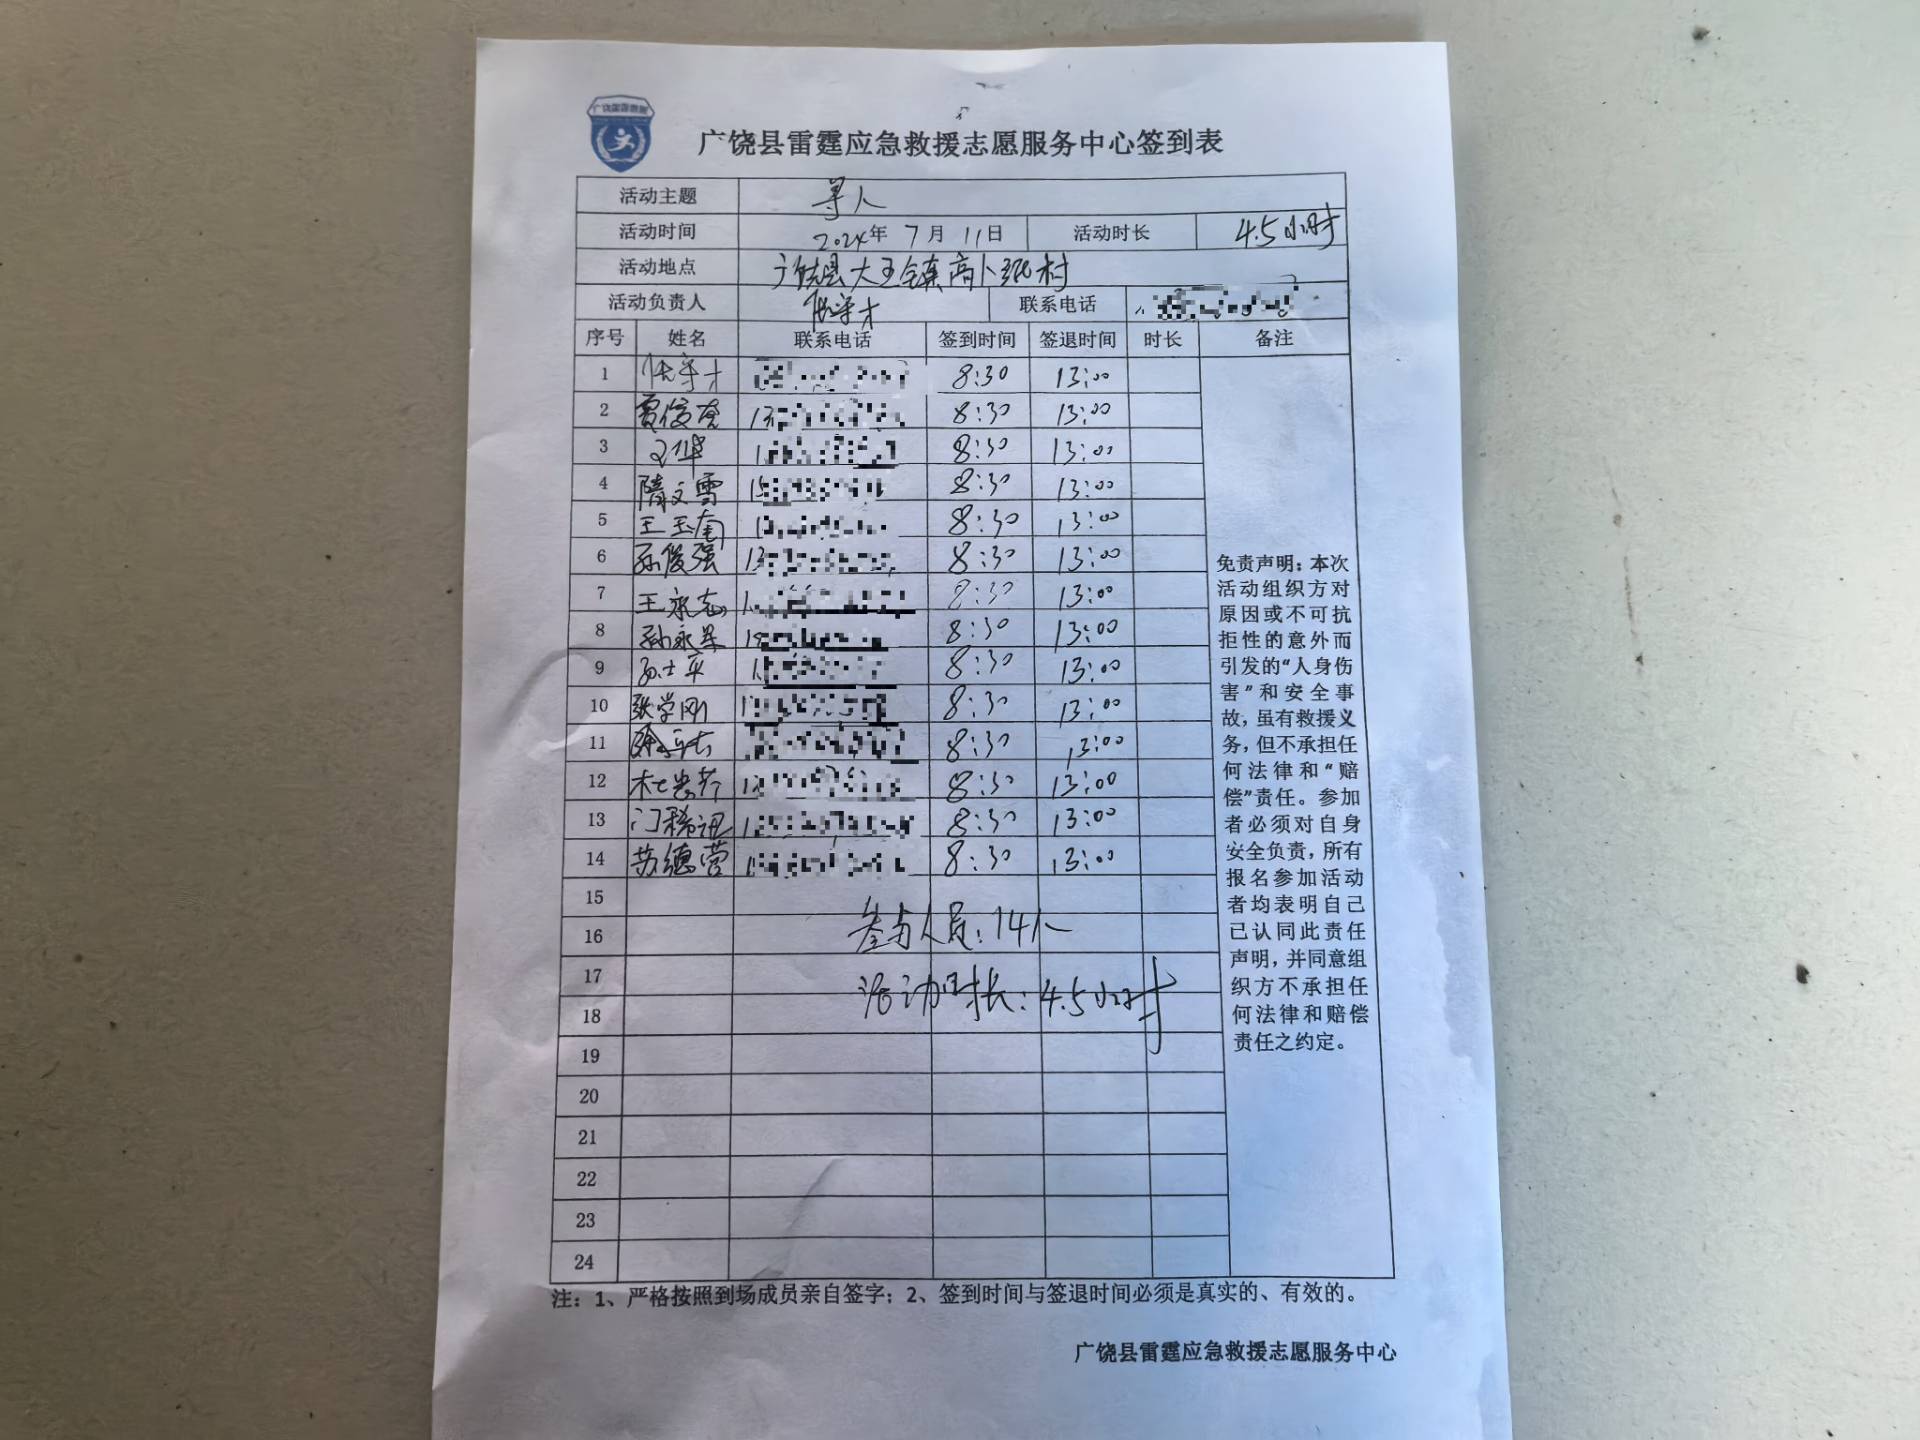 广饶县雷霆应急救援志愿服务中心签到表
活动主题 寻人
活动时间 2024年 7月 11日 活动时长 4.5小时
活动地点 广饶县大王镇高卜纸村
活动负责人 联系电话
序号 姓名 联系电话 签到时间 签退时间 时长 备注
1 8:30 13:00
2 8:30 13:00
3 8:30 13:00
4 隋文雪 8:30 13:00
5 王玉奎 8:30 13:00
6 孙俊强 8:30 13:00
7 王永志 8:30 13:00
8 孙永果 8:30 13:00
9 孙士平 8:30 13:00
10 张学刚 8:30 13:00
11 8:30 13:00
12 8:30 13:00
13 8:30 13:00
14 苏德营 8:30 13:00
15
16 参与人员:14人
17
18 活动时长:4.5小时
19
20
21
22
23
24
免责声明:本次
活动组织方对
原因或不可抗
拒性的意外而
引发的“人身伤
害”和安全事
故,虽有救援义
务,但不承担任
何法律和“赔
偿”责任。参加
者必须对自身
安全负责,所有
报名参加活动
者均表明自己
已认同此责任
声明,并同意组
织方不承担任
何法律和赔偿
责任之约定。
注:1、严格按照到场成员亲自签字;2、签到时间与签退时间必须是真实的、有效的。
广饶县雷霆应急救援志愿服务中心